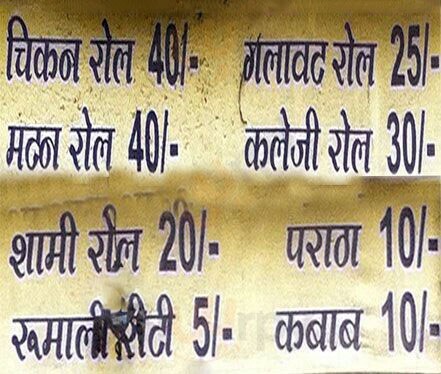 चिकन रोल 40/- गलावट रोल 25/-
मटन रोल 40/- कलेजी रोल 30/-
शामी रोल 20/- पराठा 10/-
रूमाली रोटी 5/- कबाब 10/-